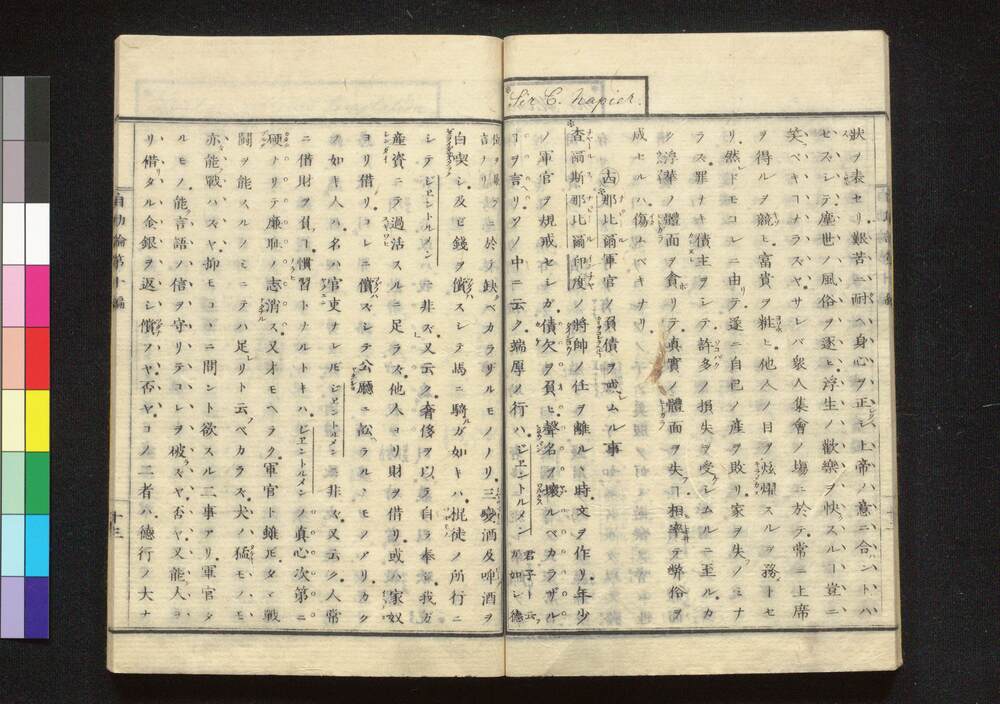 Sir C. Napier.
状ヲ表セリ艱苦ニ耐ヘ身心ヲ正シ上帝ノ意ニ合ハントハ
セズシテ塵世ノ風俗ヲ逐ヒ浮生ノ歡樂ヲ快スルヿ豈ニ
笑ベキヿナラスヤサレバ衆人集會ノ塲ニ於テ常ニ上席
ヲ得ルヲ競ヒ富貴ヲ粧ヒ他人ノ目ヲ炫燿スルヲ務トセ
リ然レドモコレニ由リテ遂ニ自己ノ産ヲ敗リ家ヲ失フノミナ
ラス罪ナキ債主ヲシテ許多ノ損失ヲ受ケシムルニ至ルカ
ク浮華ノ體面ヲ貪リテ真實ノ體面ヲ失フヿ相率テ弊俗ヲ
成セルハ傷ムベキナリ
那比爾軍官ノ負債ヲ戒ムル事
査爾斯那比爾印度ノ將帥ノ任ヲ離ルヽ時文ヲ作リ年少
ノ軍官ヲ規戒セシガ債欠ヲ負ヒ聲名ヲ壞ルベカラザル
ヿヲ言リソノ中ニ云ク端厚ノ行ハジエントルメン 君子ト云フガ如シ
ニ於テ缺ベカラザルモノナリ三變酒及啤酒ヲ
白喫シ及ビ錢ヲ償ハズシテ馬ニ騎ルガ如キハ棍徒ノ所行ニ
シテジエントルメンノ行ニハ非ズ又云ク奢侈ヲ以テ自ラ奉ジ我ガ
産資ニテ過活スルニ足ラズ他人ヨリ財ヲ借リ或ハ家奴
ヨリ借リコレニ償ハズシテ公廳ニ訟ヘラルヽモノアリカク
ノ如キ人ハ名ハ官吏ナレドモジエントルメンニ非ズ又云ク人常
ニ借財ヲ負フヿ慣習トナルトキハジエントルメンノ真心次第ニ
硬トナリテ廉耻ノ志消ス又オモヘラク軍官ト雖ドモタヾ戰
鬪ヲ能スルノミニテハ足レリト云フベカラズ犬ノ猛モノモ
亦能戰ハズヤ抑モコヽニ問ント欲スル二事アリ軍官タ
ルモノ能言語ノ信ヲ守リテコレヲ破ラズヤ否ヤ又能人ヨ
リ借リタル金銀ヲ返シ償フヤ否ヤコノ二者ハ德行ノ大ナ
自助論第十編
十三